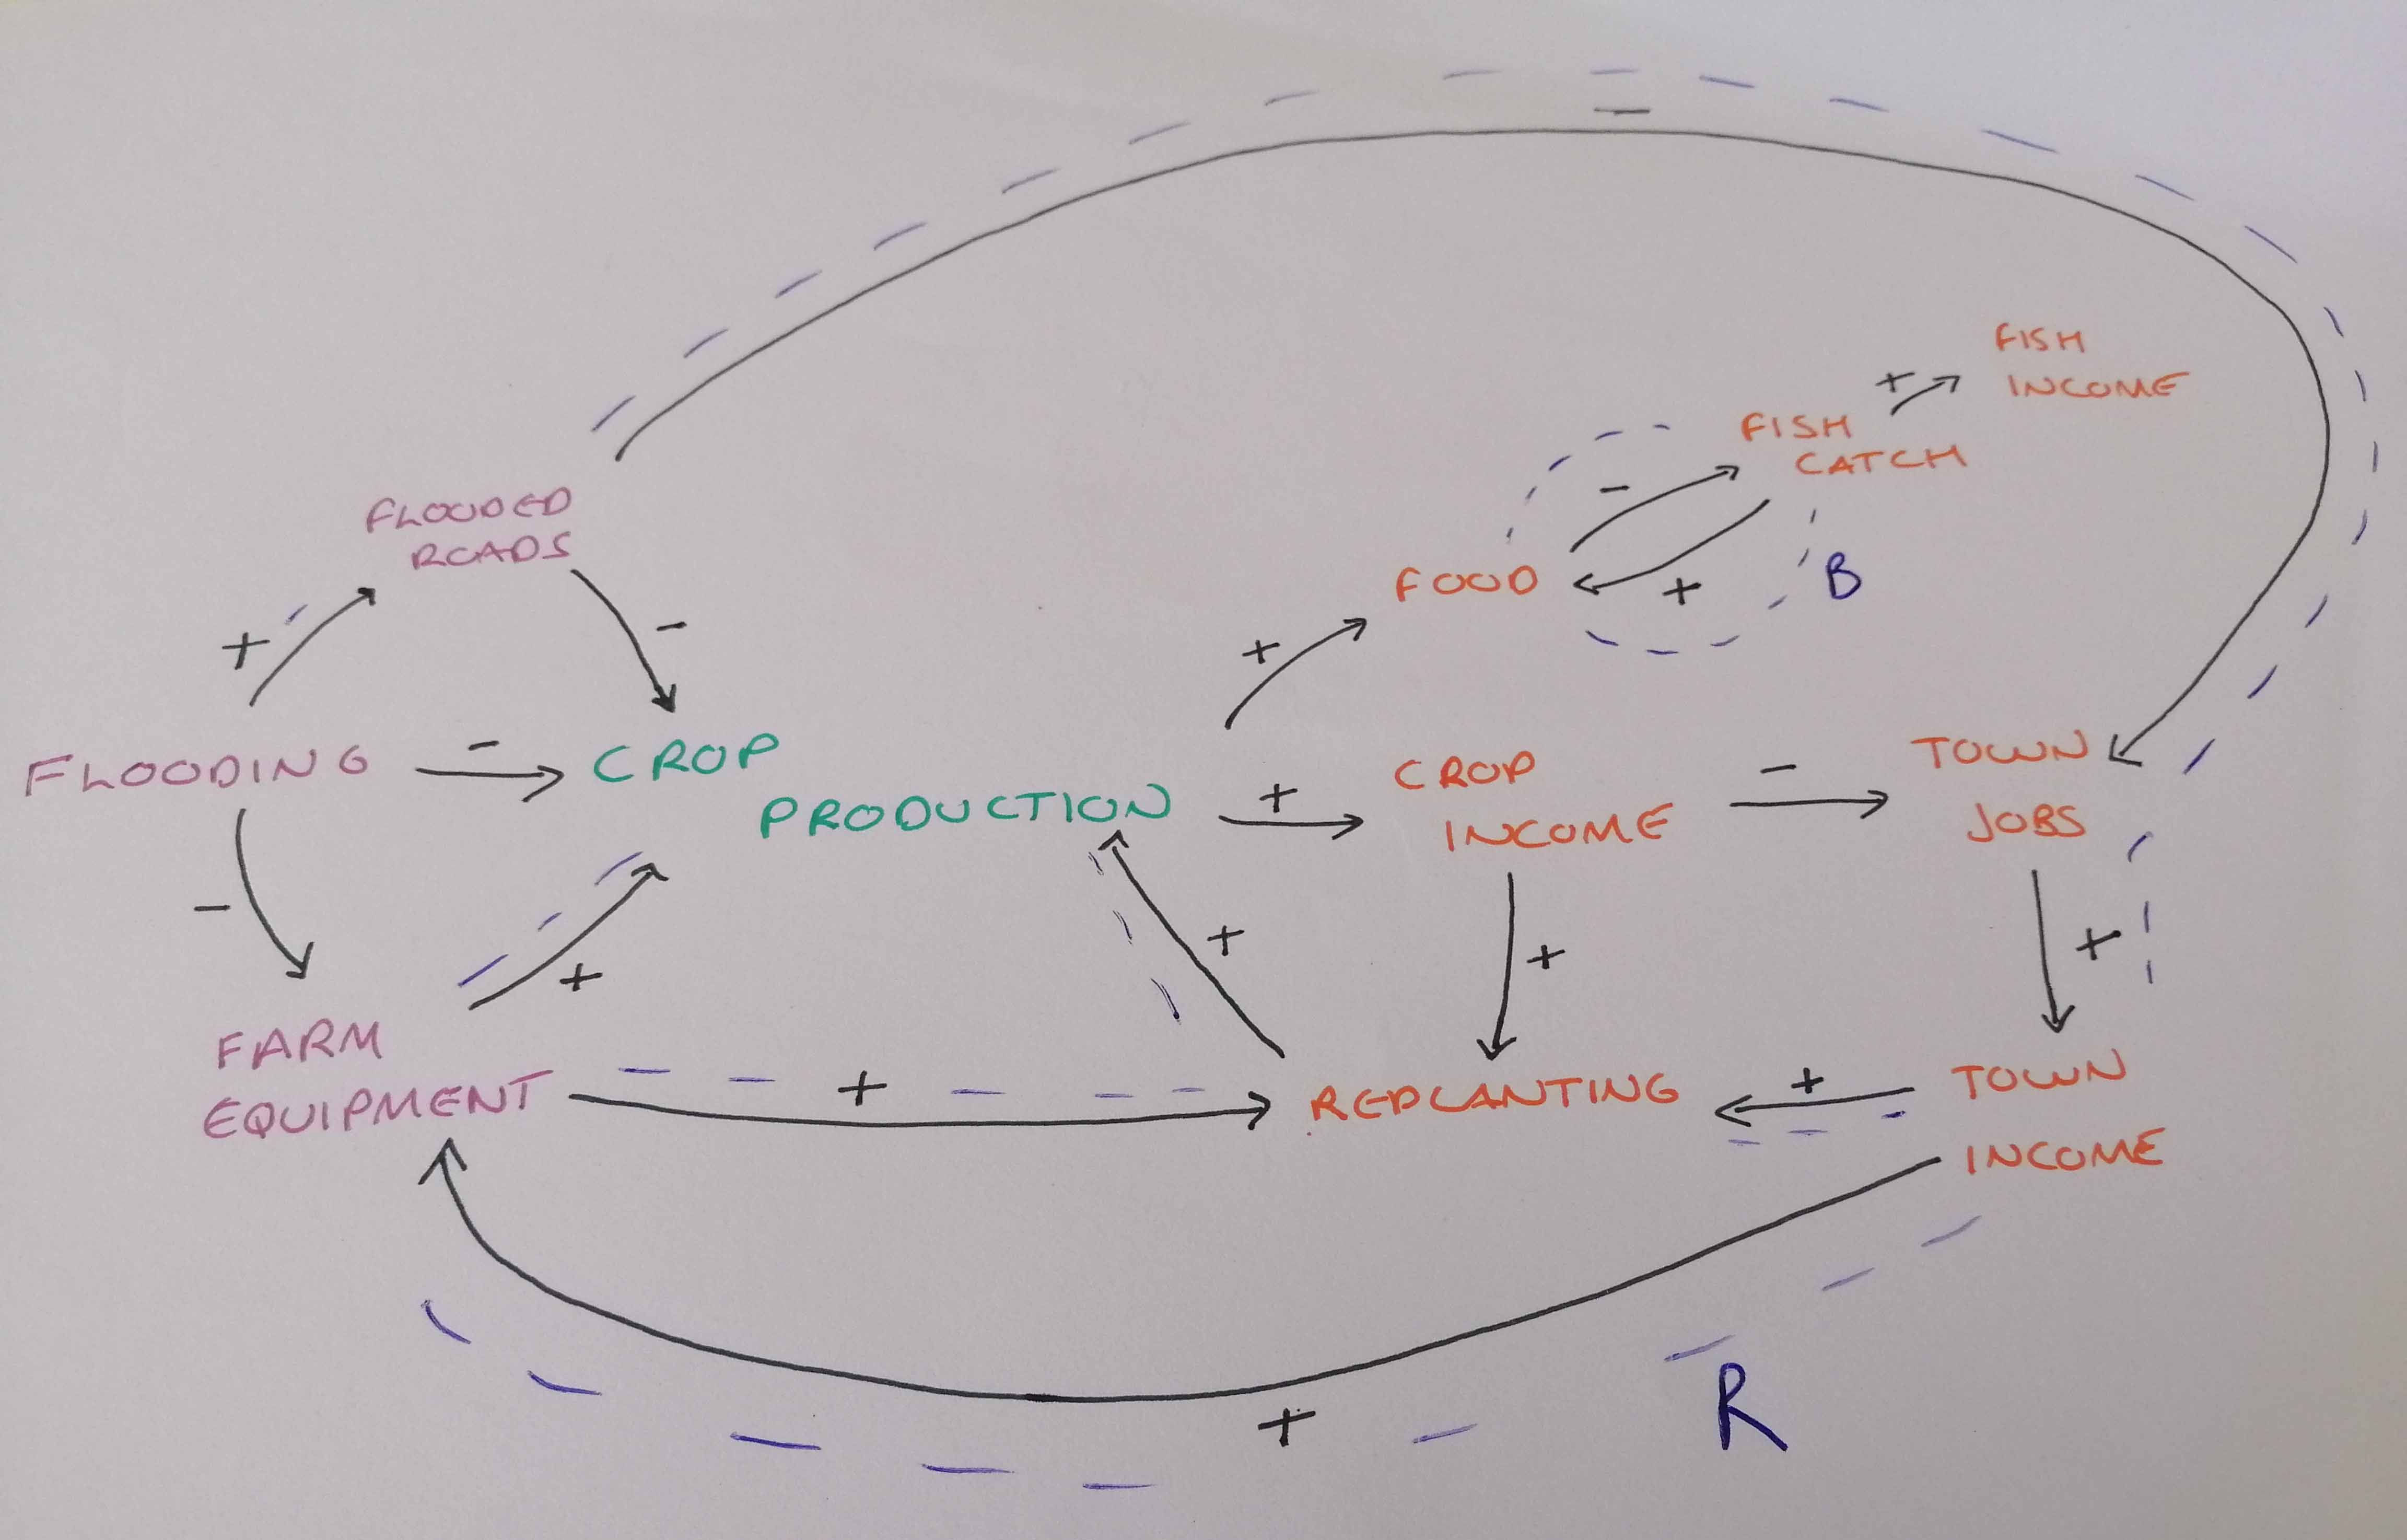 -
FISH
INCOME
+
FISH
CATCH
-
FLOODED
ROADS
FOOD
+
B
+
-
+
FLOODING
-
CROP
PRODUCTION
+
CROP
INCOME
-
TOWN
JOBS
-
+
+
+
+
FARM
EQUIPMENT
+
REPLANTING
+
TOWN
INCOME
+
R